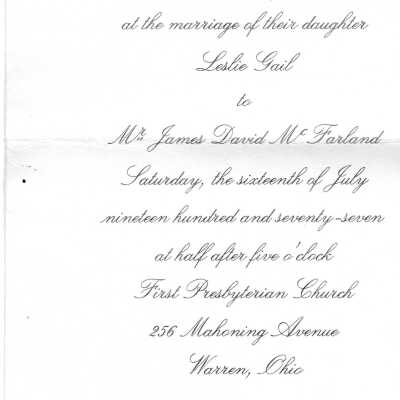 at the marriage of their daughter
Leslie Gail
to
Mr. James David McFarland
Saturday, the sixteenth of July
nineteen hundred and seventy-seven
at half after five o'clock
First Presbyterian Church
256 Mahoning Avenue
Warren, Ohio